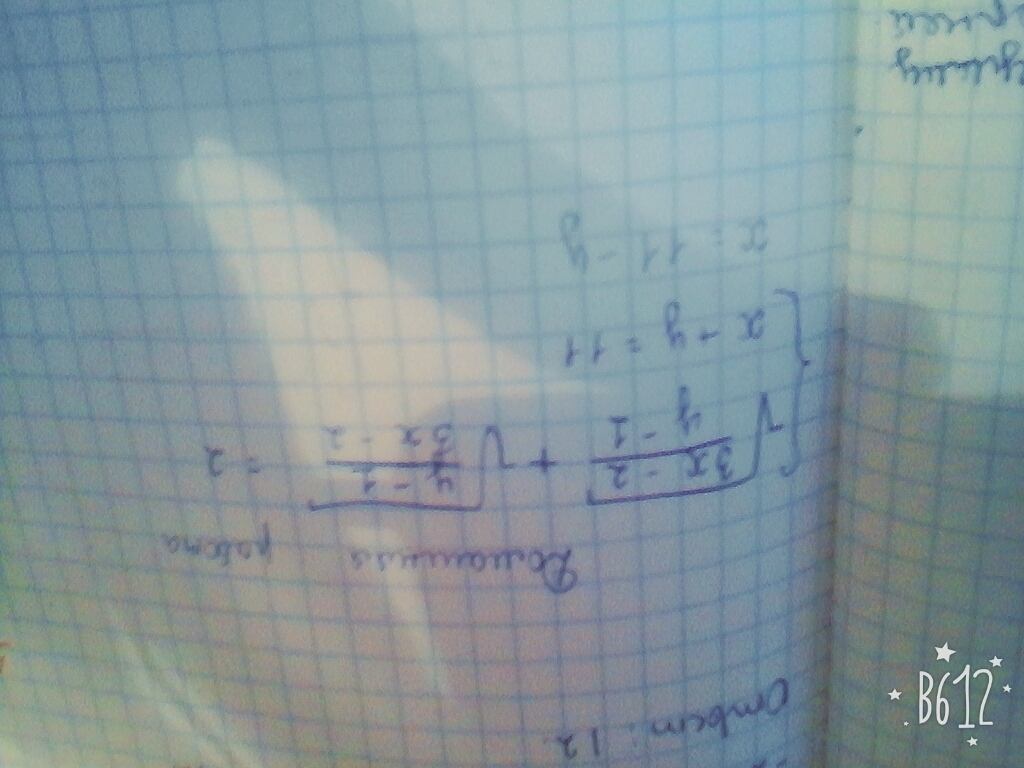 Ответ: 12.
Домашняя работа
√(3x - 2)/(y - 1) + √(y - 1)/(3x - 2) = 2
x + y = 11
x = 11 - y
B612